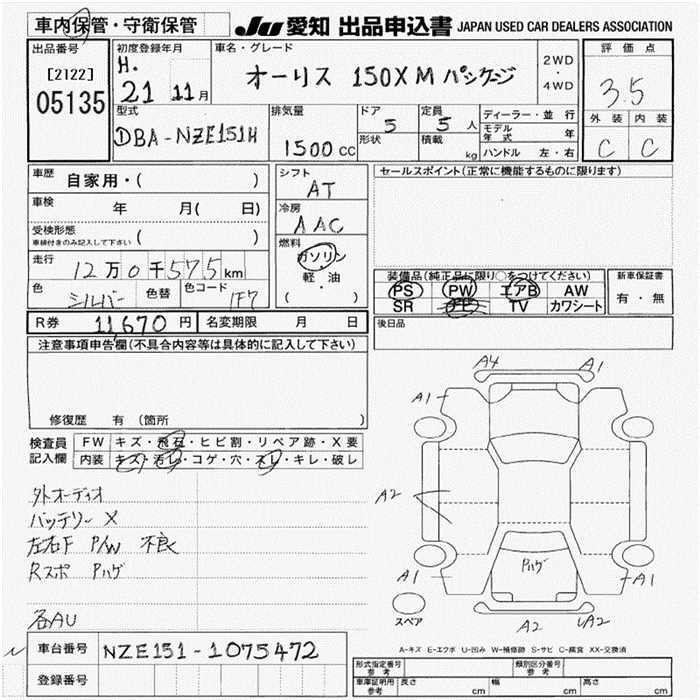 車内保管・守衛保管
JU 愛知 出品申込書 JAPAN USED CAR DEALERS ASSOCIATION
出品番号
[2122]
05135
初度登録年月
H.
21 11月
車名・グレード
オーリス 150X M パッケージ
2WD
・
4WD
評価点
3.5
外装 内装
C C
型式
DBA-NZE151H
排気量
1500 cc
ドア
5
形状
定員
5 人
積載
kg
ディーラー・並行
モデル年式 年
ハンドル 左・右
車歴
自家用・( )
車検
年 月( 日)
受検形態
車検付きのみ記入して下さい ( )
走行
12万0千575km
色
シルバー
色替
色コード
1F7
シフト
AT
冷房
AAC
燃料
ガソリン
軽・油
( )
セールスポイント(正常に機能するものに限ります)
装備品(純正品に限り○をつけてください)
PS PW エアB AW
SR TV カワシート
新車保証書
有・無
R券 11,670 円
名変期限 月 日
後日品
注意事項申告欄(不具合内容等は具体的に記入して下さい)
修復歴 有(箇所 )
検査員
記入欄
FW キズ・飛石・ヒビ割・リペア跡・X要
内装 キズ・汚レ・コゲ・穴・スレ・キレ・破レ
外オーディオ
バッテリーX
左右F P/W 不良
Rスポ Pハゲ
各AU
A4 A1
A1 A1
A2
Pハゲ
A1 A1
A2 A2
スペア
A-キズ E-エクボ U-凹み W-補修跡 S-サビ C-腐食 XX-交換済
車台番号 NZE151-1075472
登録番号
形式指定番号
参考
類別区分番号
参考
車庫証明用
参考
長さ cm 幅 cm 高さ cm